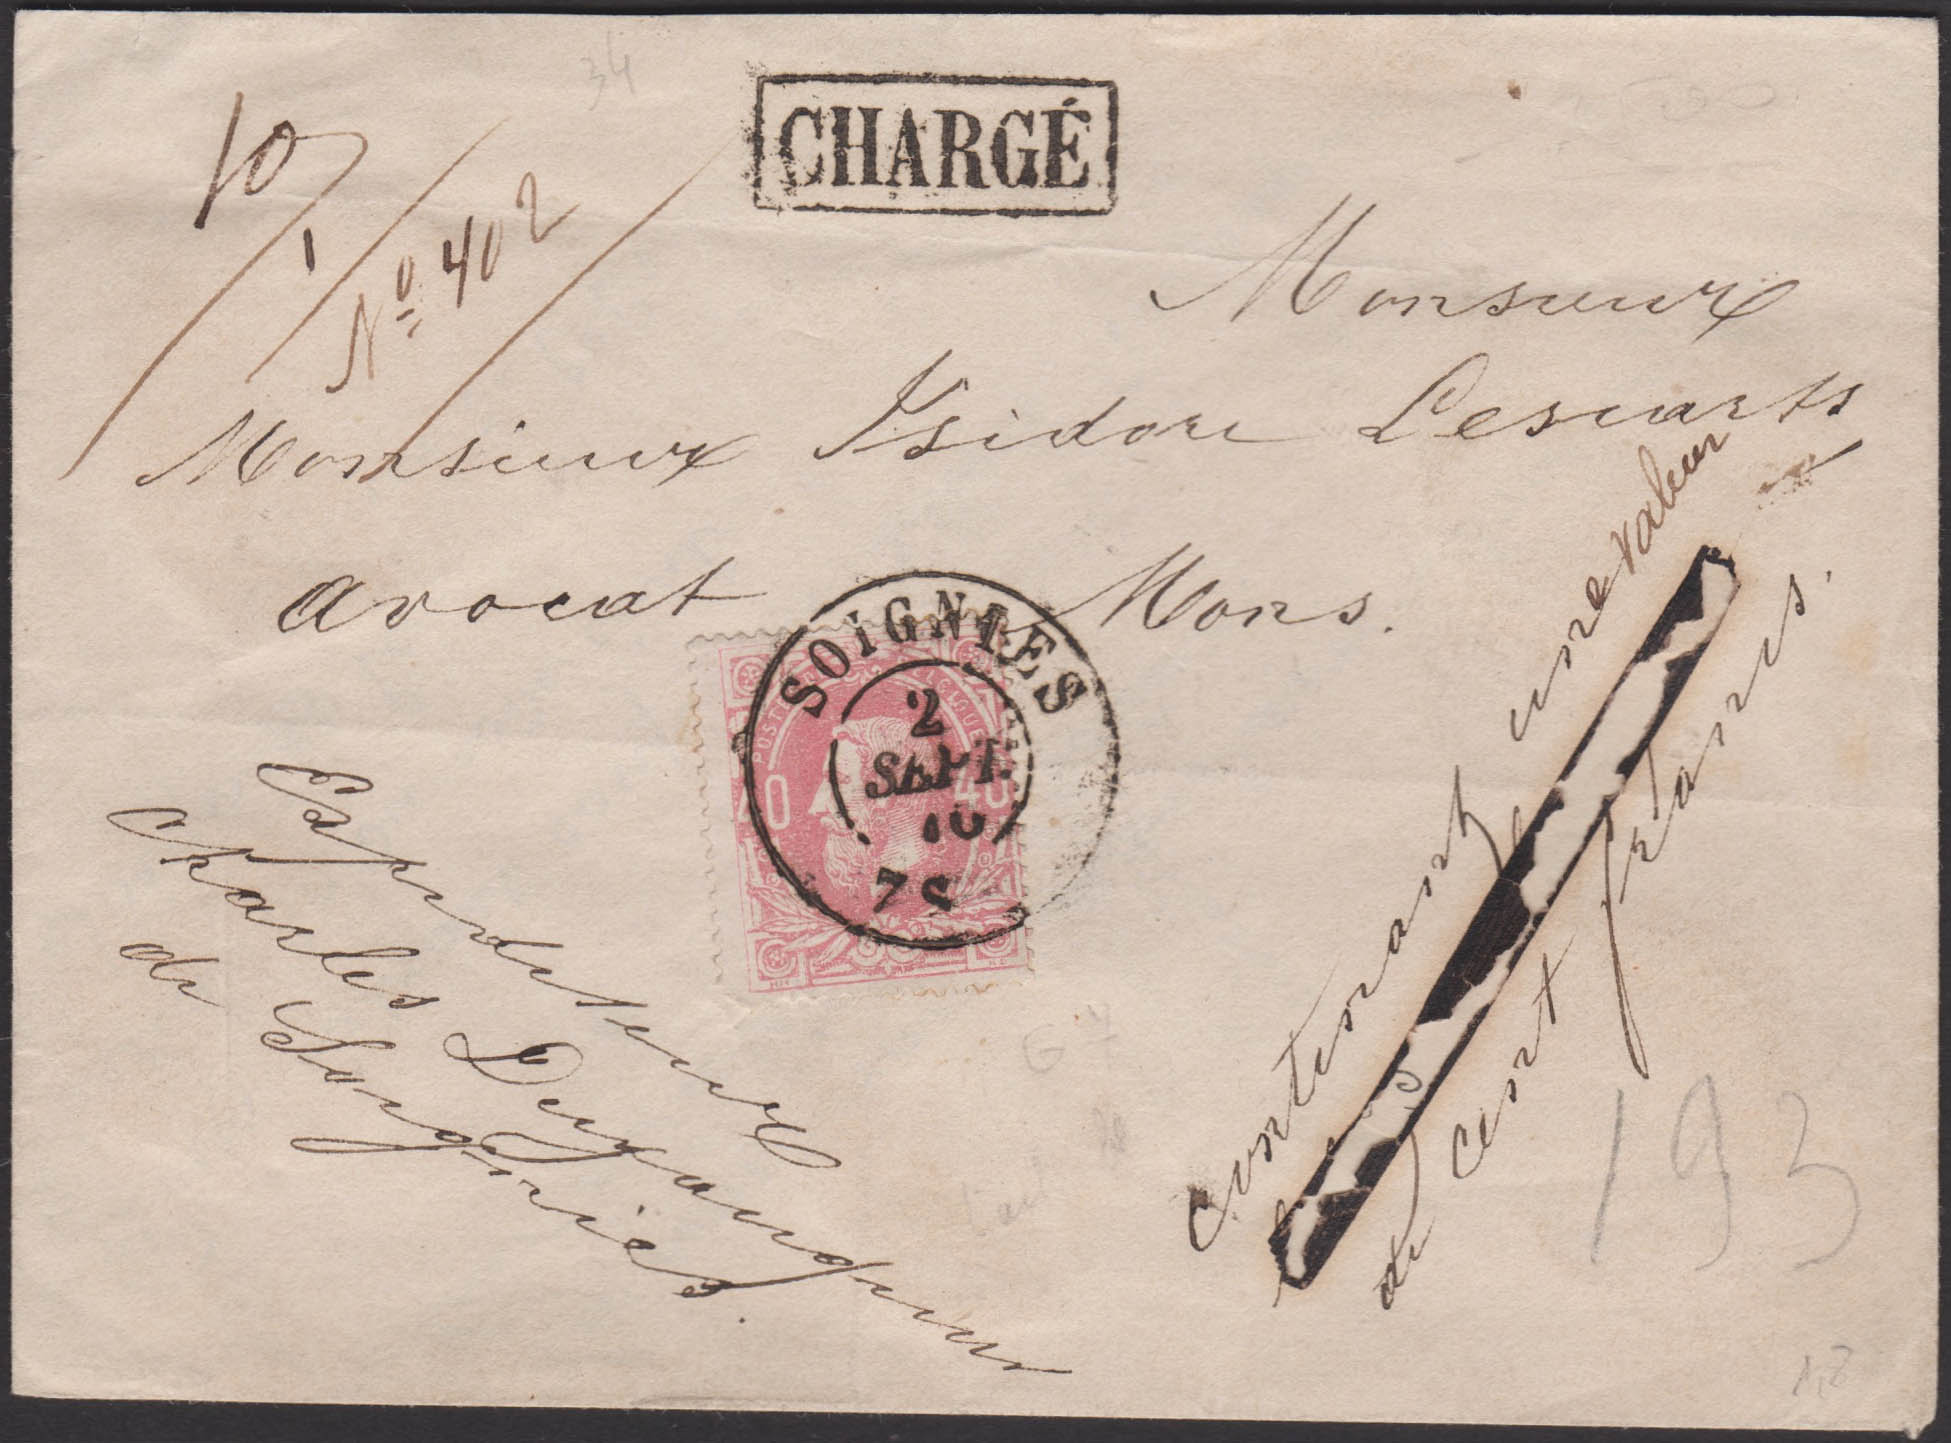 34
CHARGÉ
10
1
Nº 402
Monsieur
Monsieur Isidore Lescarts
avocat Mons.
SOIGNIES
2
SEPT.
10
7S
POSTES
40 40
Expediteur
Charles
de Soignies.
contenant une valeur
de cent francs.
G 7
193